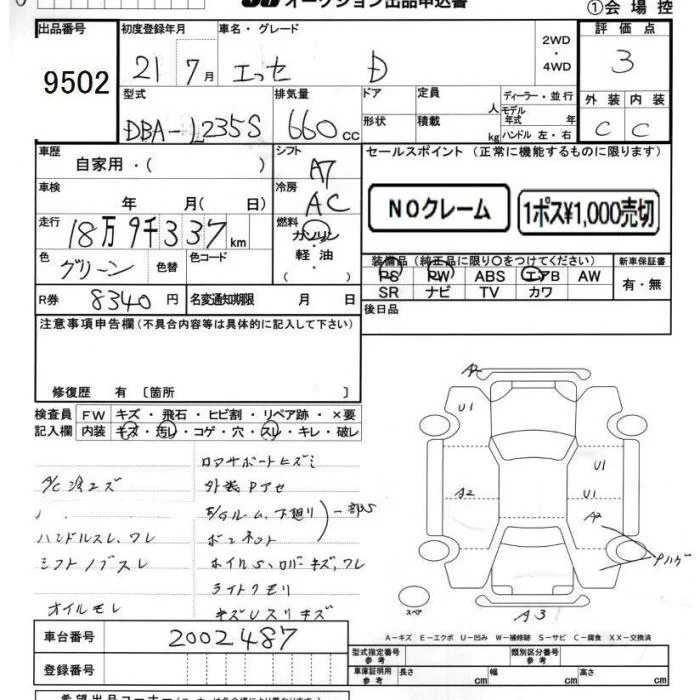 オークション出品申込書
①会場控
出品番号
9502
初度登録年月
21 7月
車名・グレード
エッセ D
2WD・4WD
評価点
3
型式
DBA-L235S
排気量
660cc
ドア
形状
定員 人
積載 kg
ディーラー・並行
モデル年式 年
ハンドル 左・右
外装 内装
C C
車歴
自家用・( )
シフト
AT
セールスポイント(正常に機能するものに限ります)
NOクレーム
1ポス¥1,000売切
車検
年 月( 日)
冷房
AC
走行
18万9千337km
燃料
ガソリン
軽油
( )
色
グリーン
色替
色コード
装備品(純正品に限り〇をつけてください)
PS PW ABS エアB AW
SR ナビ TV カワ
新車保証書
有・無
R券
8340円
名変通知期限 月 日
後日品
注意事項申告欄(不具合内容等は具体的に記入して下さい)
修復歴 有〔箇所 〕
検査員記入欄
FW キズ・飛石・ヒビ割・リペア跡・×要
内装 キズ・汚レ・コゲ・穴・スレ・キレ・破レ
A/C冷エズ
ハンドルスレ、ワレ
シフトノブスレ
オイルモレ
外装Pアセ
E/Gルーム、下廻リ
ボンネット
一部S
ホイルS、カバーキズ、ワレ
ライトクモリ
キズUスリキズ
A2
U1
A2
U1
U1
A2
Pハゲ
スペア
A3
A-キズ E-エクボ U-凹み W-補修跡 S-サビ C-腐食 XX-交換済
車台番号
2002487
登録番号
型式指定番号 参考
類別区分番号 参考
車庫証明用 参考
長さ cm
幅 cm
高さ cm